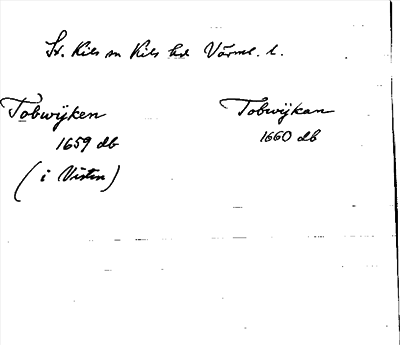 St. Kils sn Kils hd Värml. l.
Tobwijken
1659 db
(i Visten)
Tobwijkan
1660 db